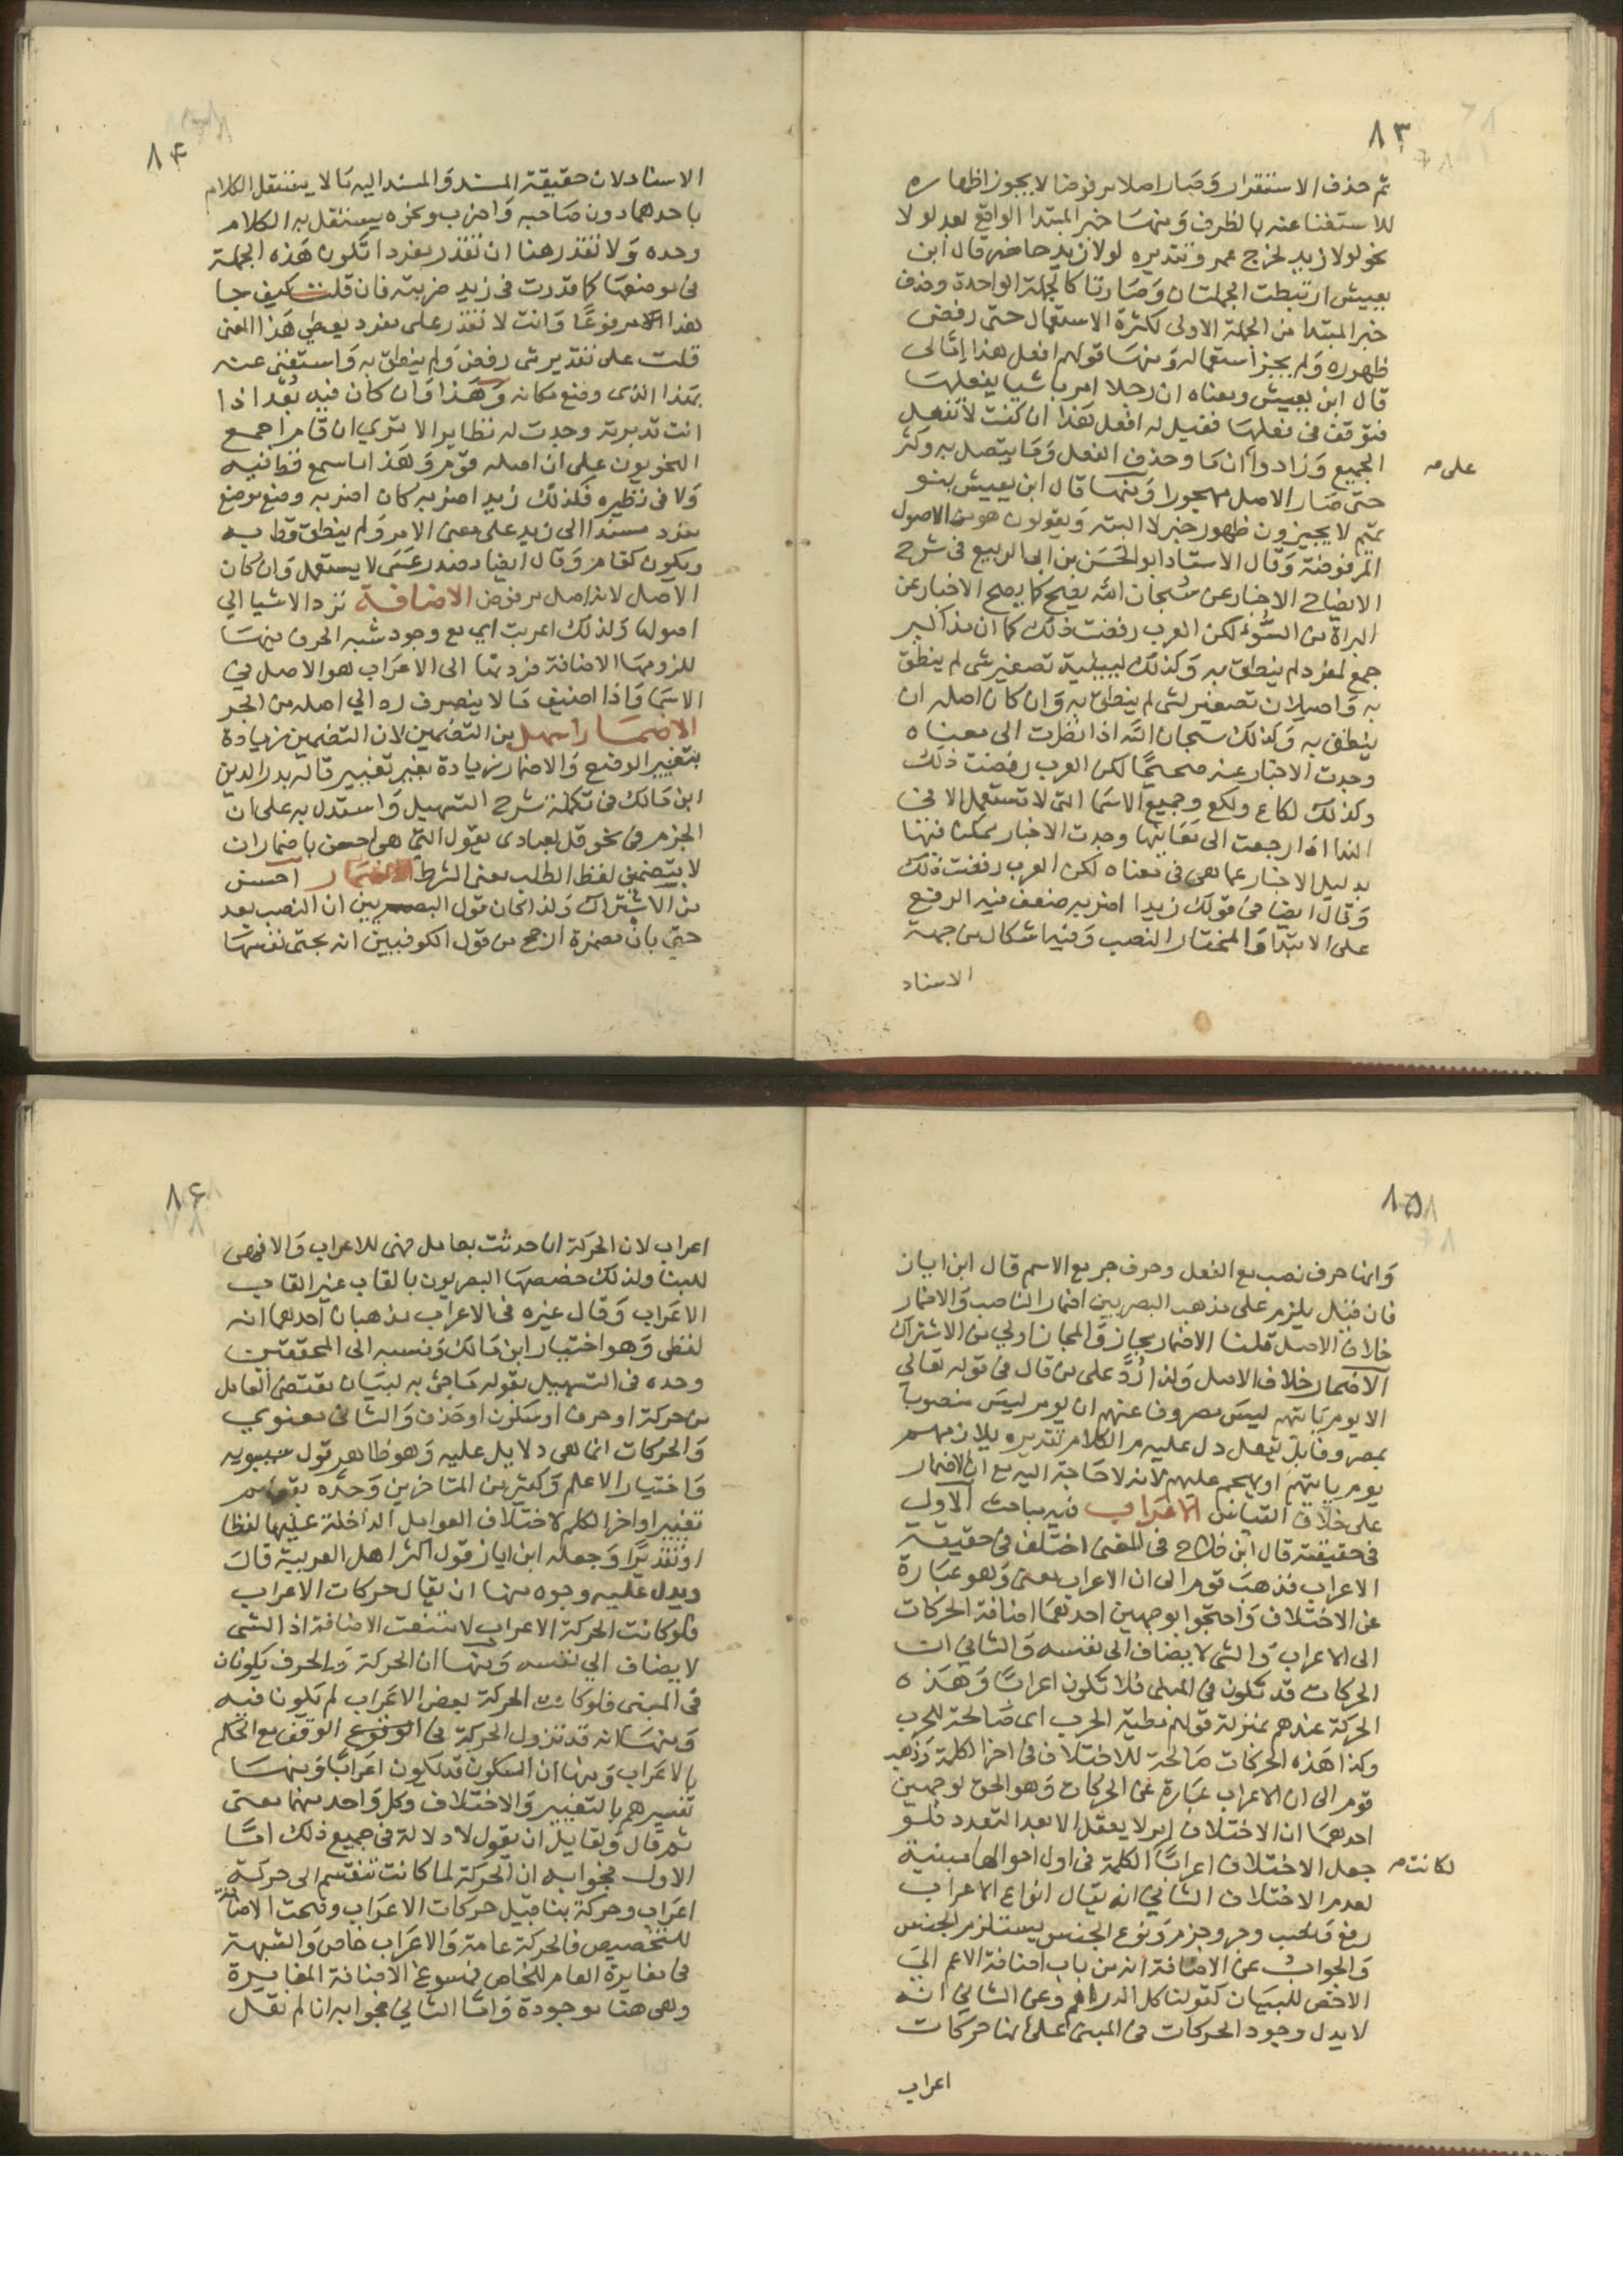 ٨٣
ثم حذف الاستقرار وصار اصلا مرفوضا لا يجوز اظهاره
للاستغنا عنه بالظرف ومنها خبر المبتدا الواقع بعد لولا
نحو لولا زيد لخرج عمرو تقديره لولا زيد حاضر قال ابن
يعيش ارتبطت الجملتان وصارتا كالجملة الواحدة وحذف
خبر المبتدا من الجملة الاولى لكثرة الاستعمال حتى رفض
ظهوره ولم يجز استعماله ومنها قولهم افعل هذا إمّا لى
قال ابن يعيش ومعناه ان رجلا امر باشيا يفعلها
فتوقف فى فعلها فقيل له افعل هذا ان كنت لا تفعل
الجميع وزادوا ان ما وحذف الفعل وما يتصل به وكثر
على مه
حتى صار الاصل مهجورا ومنها قال ابن يعيش بنو
تميم لا يجيزون ظهور خبر لا البتة ويقولون هو من الاصول
المرفوضة وقال الاستاد ابو الحسن بن ابى الربيع فى شرح
الايضاح الاخبار عن سُبحان الله يصح كما يصح الاخبار عن
البراة من السُّوء لكن العرب رفضت ذلك كما ان مذاكير
جمع لمفرد لم ينطق به وكذلك لييلية تصغير شى لم ينطق
به واصيلان تصغير لشى لم ينطق به وان كان اصله ان
ينطق به وكذلك سبحان الله اذا نظرت الى معناه
وجدت الاخبار عنه صحيحًا لكن العرب رفضت ذلك
وكذلك لكاع ولكع وجميع الاسما التى لا تستعمل الا فى
الندا اذا رجعت الى معانيها وجدت الاخبار ممكنا فيها
بدليل الاخبار عما هى فى معناه لكن العرب رفضت ذلك
وقال ايضا فى قولك زيدا اضربه ضعف فيه الرفع
على الابتدا والمختار النصب وفيه اشكال من جهة
الاسناد
٨٤
الاسناد لان حقيقة المسند والمسند اليه ما لا يستقل الكلام
باحدهما دون صاحبه واضرب ونحوه يستقل به الكلام
وحده ولا تقدر هنا ان تقدر مفردا تكون هذه الجملة
فى موضعها كما قدرت فى زيد ضربته فان قلت كيف جا
هذا مرفوعًا وانت لا تقدر على مفرد يعطي هذا المعنى
قلت على تقدير شى رفض ولم ينطق به واستغنى عنه
بهذا الذى وضع مكانه وهذا وان كان فيه بُعد اذا
انت تدبرته وجدت له نظاير الا ترى ان قام اجمع
النحويون على ان اصله قوم وهذا ما سمع قط فيه
ولا فى نظيره فكذلك زيد اضربه كان اضربه وضع موضع
مفرد مسندا الى زيد على معنى الامر ولم ينطق قط به
ويكون كقام وقال ايضا مصدر عَسَى لا يستعمل وان كان
الاصل لانه اصل مرفوض الاضافة ترد الاشيا الي
اصولها ولذلك اعربت اي مع وجود شبه الحرف فيها
للزومها الاضافة فردتها الى الاعراب هو الاصل في
الاسما واذا اضيف ما لا ينصرف رد الي اصله من الجر
الاضمار اسهل من التضمين لان التضمين زيادة
بتغيير الوضع والاضمار زيادة بغير تغيير قاله بدر الدين
ابن مالك فى تكملة شرح التسهيل واستدل به على ان
الجزم فى نحو قل لعبادى يقول التى هى احسن باضمار ان
لا بتضمين لفظ الطلب معنى الشرط الاضمار احسن
من الاشتراك ولذا كان قول البصريين ان النصب بعد
حتي بان مضمرة ارجح من قول الكوفيين انه بحتى نفسها
٨٥
وانها حرف نصب مع الفعل وحرف جر مع الاسم قال ابن اياز
فان قيل يلزم على مذهب البصريين اضمار الناصب والاضمار
خلاف الاصل قلنا الاضمار مجاز والمجاز اولي من الاشتراك
الاضمار خلاف الاصل ولذا رُدَّ على من قال فى قوله تعالي
الا يوم ياتيهم ليس مصروفا عنهم ان يوم ليس منصوبا
بمصروفا بل بفعل دل عليه الكلام تقديره يلازمهم
يوم ياتيهم او يهجم عليهم لانه لا حاجة اليه مع ان الاضمار
على خلاف القياس الاعراب فيه مباحث الاول
فى حقيقته قال ابن فلاح فى المغنى اختلف فى حقيقة
الاعراب فذهب قوم الى ان الاعراب معنى وهو عبارة
عن الاختلاف واحتجوا بوجهين احدهما اضافة الحركات
الى الاعراب والشى لا يضاف الى نفسه والثاني ان
الحركات قد تكون فى المبنى فلا تكون اعرابًا وهذه
الحركة عندهم بمنزلة قولهم مطية الحرب اى صالحة للحرب
وكذا هذه الحركات صالحة للاختلاف فى اخر الكلمة وذهب
قوم الى ان الاعراب عبارة عن الحركات وهو الحق لوجهين
احدهما ان الاختلاف امر لا يعقل الا بعد التعدد فلو
جعل الاختلاف اعرابًا الكلمة فى اول احوالها مبنية
لكانت مه
لعدم الاختلاف الثاني انه يقال انواع الاعراب
رفع ونصب وجر وجزم ونوع الجنس يستلزم الجنس
والجواب عن الاضافة انه من باب اضافة الاعم الى
الاخص للبيان كقولنا كل الدراهم وعن الثاني انه
لا يدل وجود الحركات فى المبنى على انها حركات
اعراب
٨٦
اعراب لان الحركة ان حدثت بعامل فهى للاعراب والا فهى
للبنا ولذلك خصصها البصريون بالقاب غير القاب
الاعراب وقال غيره فى الاعراب مذهبان احدهما انه
لفظى وهو اختيار ابن مالك ونسبه الى المحققين
وحده فى التسهيل بقوله ما جئ به لبيان مقتضى العامل
من حركة او حرف او سكون او حذف والثانى معنوي
والحركات انما هى دلايل عليه وهو ظاهر قول سيبويه
واختيار الاعلم وكثير من المتاخرين وحده بقولهم
تغيير اواخر الكلم لاختلاف العوامل الداخلة عليها لفظا
او تقديرًا وجعله ابن اياز قول اكثر اهل العربية قال
ويدل عليه وجوه منها ان يقال حركات الاعراب
فلو كانت الحركة الاعراب لامتنعت الاضافة اذ الشى
لا يضاف الي نفسه ومنها ان الحركة والحرف يكونان
فى المبنى فلو كانت الحركة بعض الاعراب لم يكونا فيه
ومنها انه قد تزول الحركة فى الوقف مع الحكم
بالاعراب ومنها ان السكون قد يكون اعرابًا ومنها
تفسيرهم بالتغيير والاختلاف وكل واحد منهما معنى
ثم قال ولقايل ان يقول لا دلالة فى جميع ذلك امّا
الاول فجوابه ان الحركة لما كانت تنقسم الى حركة
اعراب وحركة بنا قيل حركات الاعراب وصحت الاضافة
للتخصيص فالحركة عامة والاعراب خاص والشبهة
فى مغايرة العام للخاص فمسوغ الاضافة المغايرة
وهى هنا موجودة وامّا الثاني فجوابه انا لم نقل